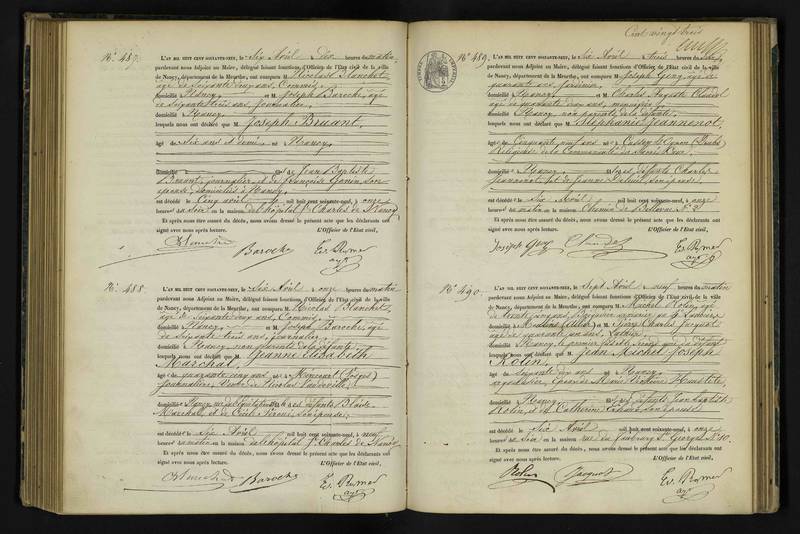 N.° 487.
L'AN MIL HUIT CENT SOIXANTE-NEUF, le Six Avril, dix heures du matin,
pardevant nous Adjoint au Maire, délégué faisant fonctions d'Officier de l'Etat civil de la ville
de Nancy, département de la Meurthe, ont comparu M. Nicolas Blanchet,
âgé de soixante cinq ans, Commis,
domicilié à Nancy, et M. Joseph Baroche, âgé
de soixante trois ans, journalier,
domicilié à Nancy,
lesquels nous ont déclaré que M. Joseph Bruant,
âgé de six ans et demi, né à Nancy,
domicilié Jean Baptiste
Bruant, journalier, et de Françoise Gonin, son
épouse, domiciliés à Nancy,
est décédé le Cinq avril mil huit cent soixante-neuf, à onze
heures du soir en la maison de l'hôpital St Charles de Nancy.
Et après nous être assuré du décès, nous avons dressé le présent acte que les déclarants ont
signé avec nous après lecture. L'Officier de l'Etat civil,
Baroche
N.° 488.
L'AN MIL HUIT CENT SOIXANTE-NEUF, le Six Avril, onze heures du matin
pardevant nous Adjoint au Maire, délégué faisant fonctions d'Officier de l'Etat civil de la ville
de Nancy, département de la Meurthe, ont comparu M. Nicolas Blanchet,
âgé de soixante cinq ans, Commis,
domicilié à Nancy, et M. Joseph Baroche, âgé
de soixante trois ans, journalier,
domicilié à Nancy, non parents de la défunte,
lesquels nous ont déclaré que M. Jeanne Elisabeth
Marchal,
âgée de quarante cinq ans, née à (Vosges)
journalière, Veuve de Nicolas
domiciliée à Nancy, défunts Blaise
Marchal, et de son épouse,
est décédée le Six Avril mil huit cent soixante-neuf, à neuf
heures du matin en la maison de l'hôpital St Charles de Nancy.
Et après nous être assuré du décès, nous avons dressé le présent acte que les déclarants ont
signé avec nous après lecture. L'Officier de l'Etat civil,
Baroche
Cent vingt trois
N.° 489.
L'AN MIL HUIT CENT SOIXANTE-NEUF, le Six Avril, trois heures du soir,
pardevant nous Adjoint au Maire, délégué faisant fonctions d'Officier de l'Etat civil de la ville
de Nancy, département de la Meurthe, ont comparu M. Joseph Geny, âgé de
quarante ans, jardinier,
domicilié à Nancy, et M. Charles Auguste Claudel
âgé de quarante deux ans, menuisier,
domicilié à Nancy, non parents de la défunte,
lesquels nous ont déclaré que M. Stéphanie Jeannenot,
âgée de Cinquante neuf ans, née à Cussey (Doubs)
Religieuse de la Communauté du Sacré Cœur,
domiciliée à Nancy, défunts Charles
Jeannenot, et de Jeanne son épouse,
est décédée le Six Avril mil huit cent soixante-neuf, à onze
heures du matin en la maison Chemin de Bellevue N.° 2
Et après nous être assuré du décès, nous avons dressé le présent acte que les déclarants ont
signé avec nous après lecture. L'Officier de l'Etat civil,
Joseph Geny Claudel
N.° 490.
L'AN MIL HUIT CENT SOIXANTE-NEUF, le Sept Avril, neuf heures du matin
pardevant nous Adjoint au Maire, délégué faisant fonctions d'Officier de l'Etat civil de la ville
de Nancy, département de la Meurthe, ont comparu M. Michel Rolin, âgé
de trente cinq ans, Brigadier
domicilié à et M. Charles Jacquot
âgé de quarante
domicilié à Nancy, le premier fils, le second ami du défunt
lesquels nous ont déclaré que M. Jean Michel Joseph
Rolin,
âgé de soixante dix ans, né à Nancy,
époux de Marie
domicilié à Nancy, défunts Jean Baptiste
Rolin, et de Catherine son épouse
est décédé le Six Avril mil huit cent soixante-neuf, à onze
heures du soir en la maison rue du faubourg St Georges N.° 10.
Et après nous être assuré du décès, nous avons dressé le présent acte que les déclarants ont
signé avec nous après lecture. L'Officier de l'Etat civil,
Rolin Jacquot